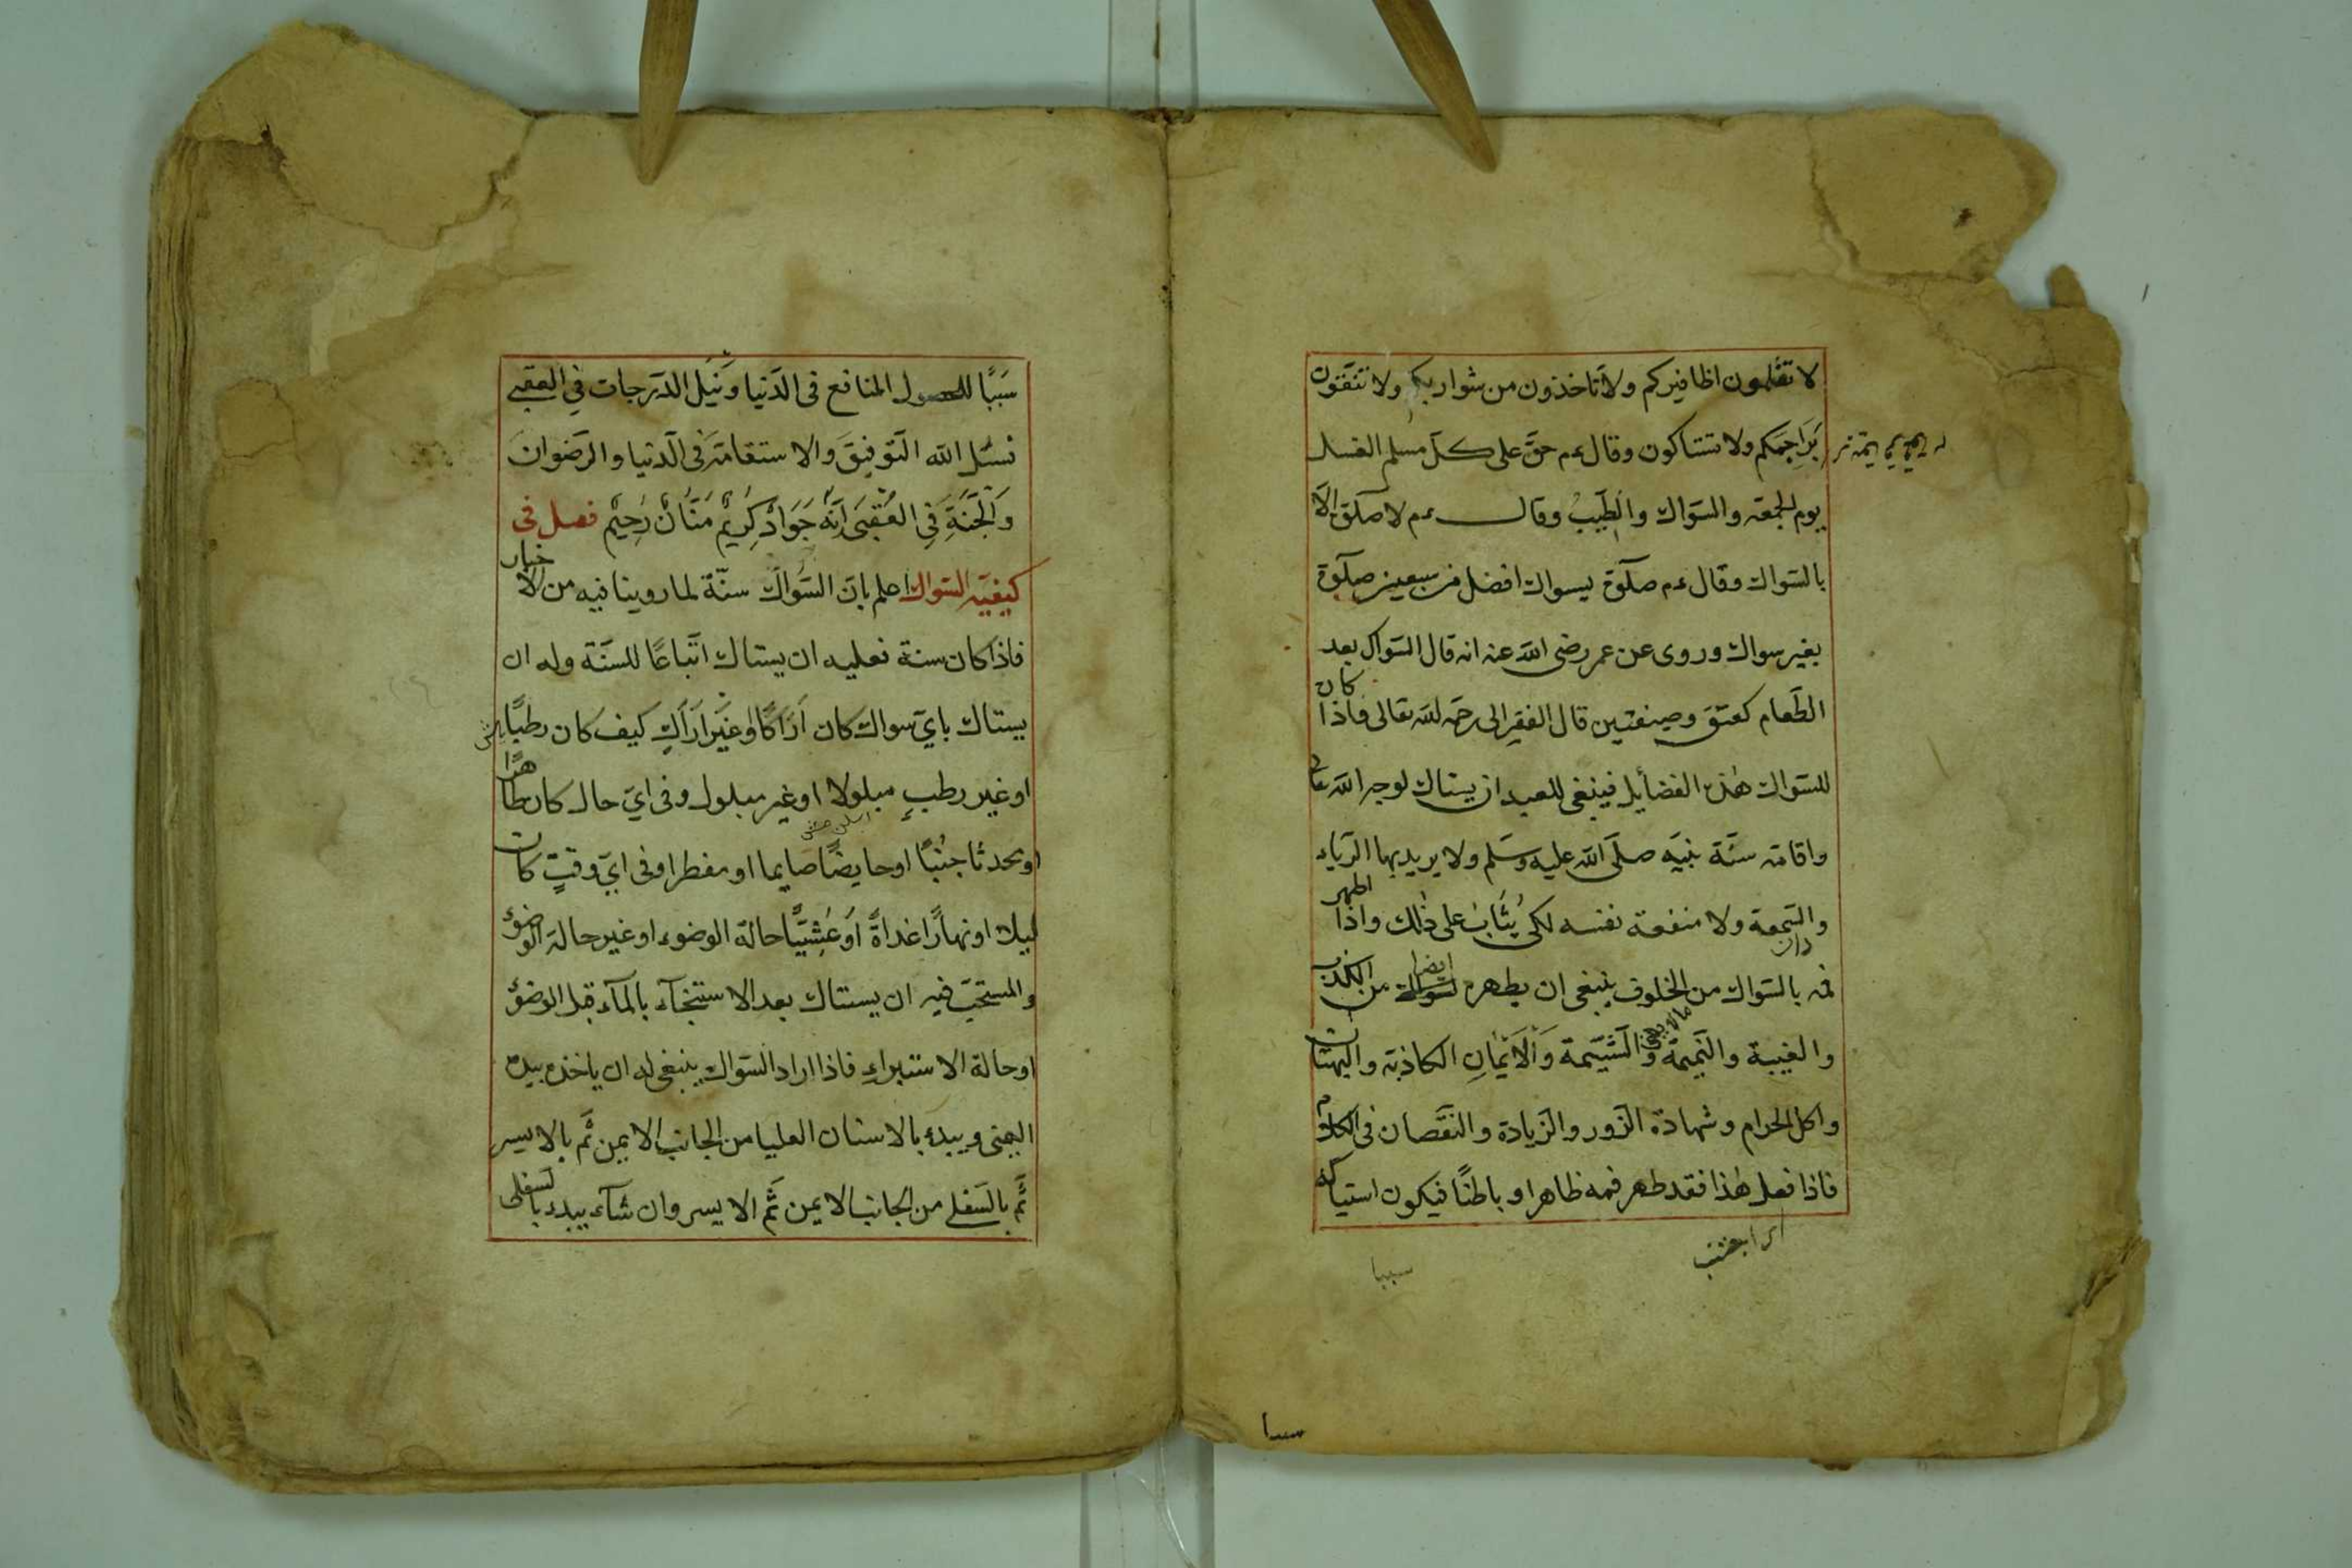 لا تقلمون اظافيركم ولا تاخذون من شواربكم ولا تنقون
براجمكم ولا تستاكون وقال ءم حق على كل مسلم الغسل
يوم الجمعة والسواك والطيب وقال ءم لا صلوة الا
بالسواك وقال ءم صلوة بسواك افضل من سبعين صلوة
بغير سواك وروى عن عمر رضى الله عنه انه قال السواك بعد
الطعام كعتق وصيفتين قال الفقير الى رحمة الله تعالى فاذا كان
للسواك هذه الفضايل فينبغى للعبد ان يستاك لوجه الله تعالى
واقامة سنة نبيه صلى الله عليه وسلم ولا يريد بها الرياء
والسمعة ولا منفعة نفسه لكى يثاب على ذلك واذا اطهر
فمه بالسواك من الخلوف ينبغى ان يطهره ايضا من الكذب
والغيبة والنميمة والشتيمة والايمان الكاذبة والبهتان
واكل الحرام وشهادة الزور والزيادة والنقصان فى الكلام
فاذا فعل هذا فقد طهر فمه ظاهرا وباطنا فيكون استياكه
سببا
سببا للحصول المنافع فى الدنيا ونيل الدرجات فى العقبى
نسئل الله التوفيق والاستقامة فى الدنيا والرضوان
والجنة فى العقبى انه جواد كريم منان رحيم فصل فى
كيفية السواك اعلم بان السواك سنة لما روينا فيه من الاخبار
فاذا كان سنة فعليه ان يستاك اتباعا للسنة وله ان
يستاك باى سواك كان اراكا او غير اراك كيف كان رطبا
او غير رطب مبلولا او غير مبلول وفى اى حال كان طاهرا
او محدثا جنبا او حايضا صايما او مفطرا وفى اى وقت كان
ليلا او نهارا غداة او عشيا حالة الوضوء او غير حالة الوضوء
والمستحب فيه ان يستاك بعد الاستنجآء بالمآء قبل الوضوء
او حالة الاستبراء فاذا اراد السواك ينبغى له ان ياخذه بيده
اليمنى ويبدء بالاسنان العليا من الجانب الايمن ثم بالايسر
ثم بالسفلى من الجانب الايمن ثم الايسر وان شآء يبدء بالسفلى